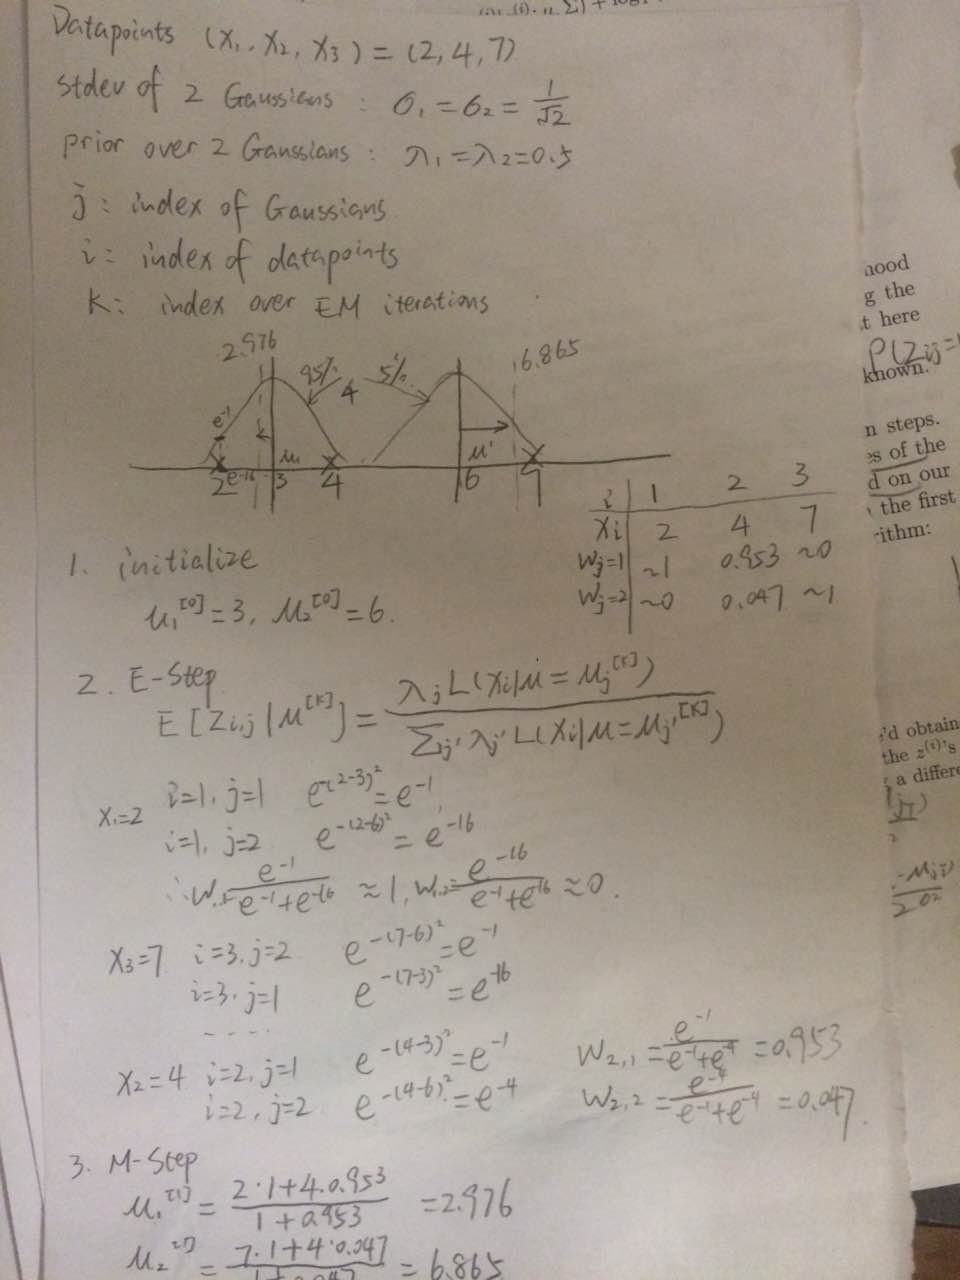 Datapoints (x₁, x₂, x₃) = (2, 4, 7)
stdev of 2 Gaussians : σ₁ = σ₂ = 1/√2
prior over 2 Gaussians : λ₁ = λ₂ = 0.5
j : index of Gaussians
i : index of datapoints
k : index over EM iterations
2.976
95%
4
5%
6.865
e⁻¹
e⁻¹⁶
μ₁
μ'
2 3 4 6 7
i | 1 2 3
xi | 2 4 7
Wj=1 | ~1 0.953 ~0
Wj=2 | ~0 0.047 ~1
1. initialize
μ₁^[0] = 3, μ₂^[0] = 6.
2. E-Step
E[Zi,j | μ^[k]] = λj L(xi | μ = μj^[k]) / Σj' λj' L(xi | μ = μj'^[k])
x₁=2 i=1, j=1 e^-(2-3)² = e⁻¹
i=1, j=2 e^-(2-6)² = e⁻¹⁶
∴ W₁,₁= e⁻¹/(e⁻¹+e⁻¹⁶) ≈ 1, W₁,₂= e⁻¹⁶/(e⁻¹+e⁻¹⁶) ≈ 0.
x₃=7 i=3, j=2 e^-(7-6)² = e⁻¹
i=3, j=1 e^-(7-3)² = e⁻¹⁶
- - - -
x₂=4 i=2, j=1 e^-(4-3)² = e⁻¹ W₂,₁ = e⁻¹/(e⁻¹+e⁻⁴) = 0.953
i=2, j=2 e^-(4-6)² = e⁻⁴ W₂,₂ = e⁻⁴/(e⁻¹+e⁻⁴) = 0.047.
3. M-Step
μ₁^[1] = (2·1+4·0.953)/(1+0.953) = 2.976
μ₂^[1] = (7·1+4·0.047)/(1+0.047) = 6.865
hood
g the
t here
P(Zij=
known.
n steps.
es of the
d on our
the first
rithm:
'd obtain
the z⁽ⁱ⁾'s
a differe